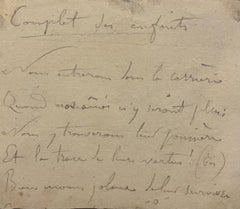 Couplet des enfants
Nous entrerons dans la carrière
Quand nos aînés n'y seront plus
Nous y trouverons leur poussière
Et la trace de leurs vertus! (bis)
Bien moins jaloux de leur survivre